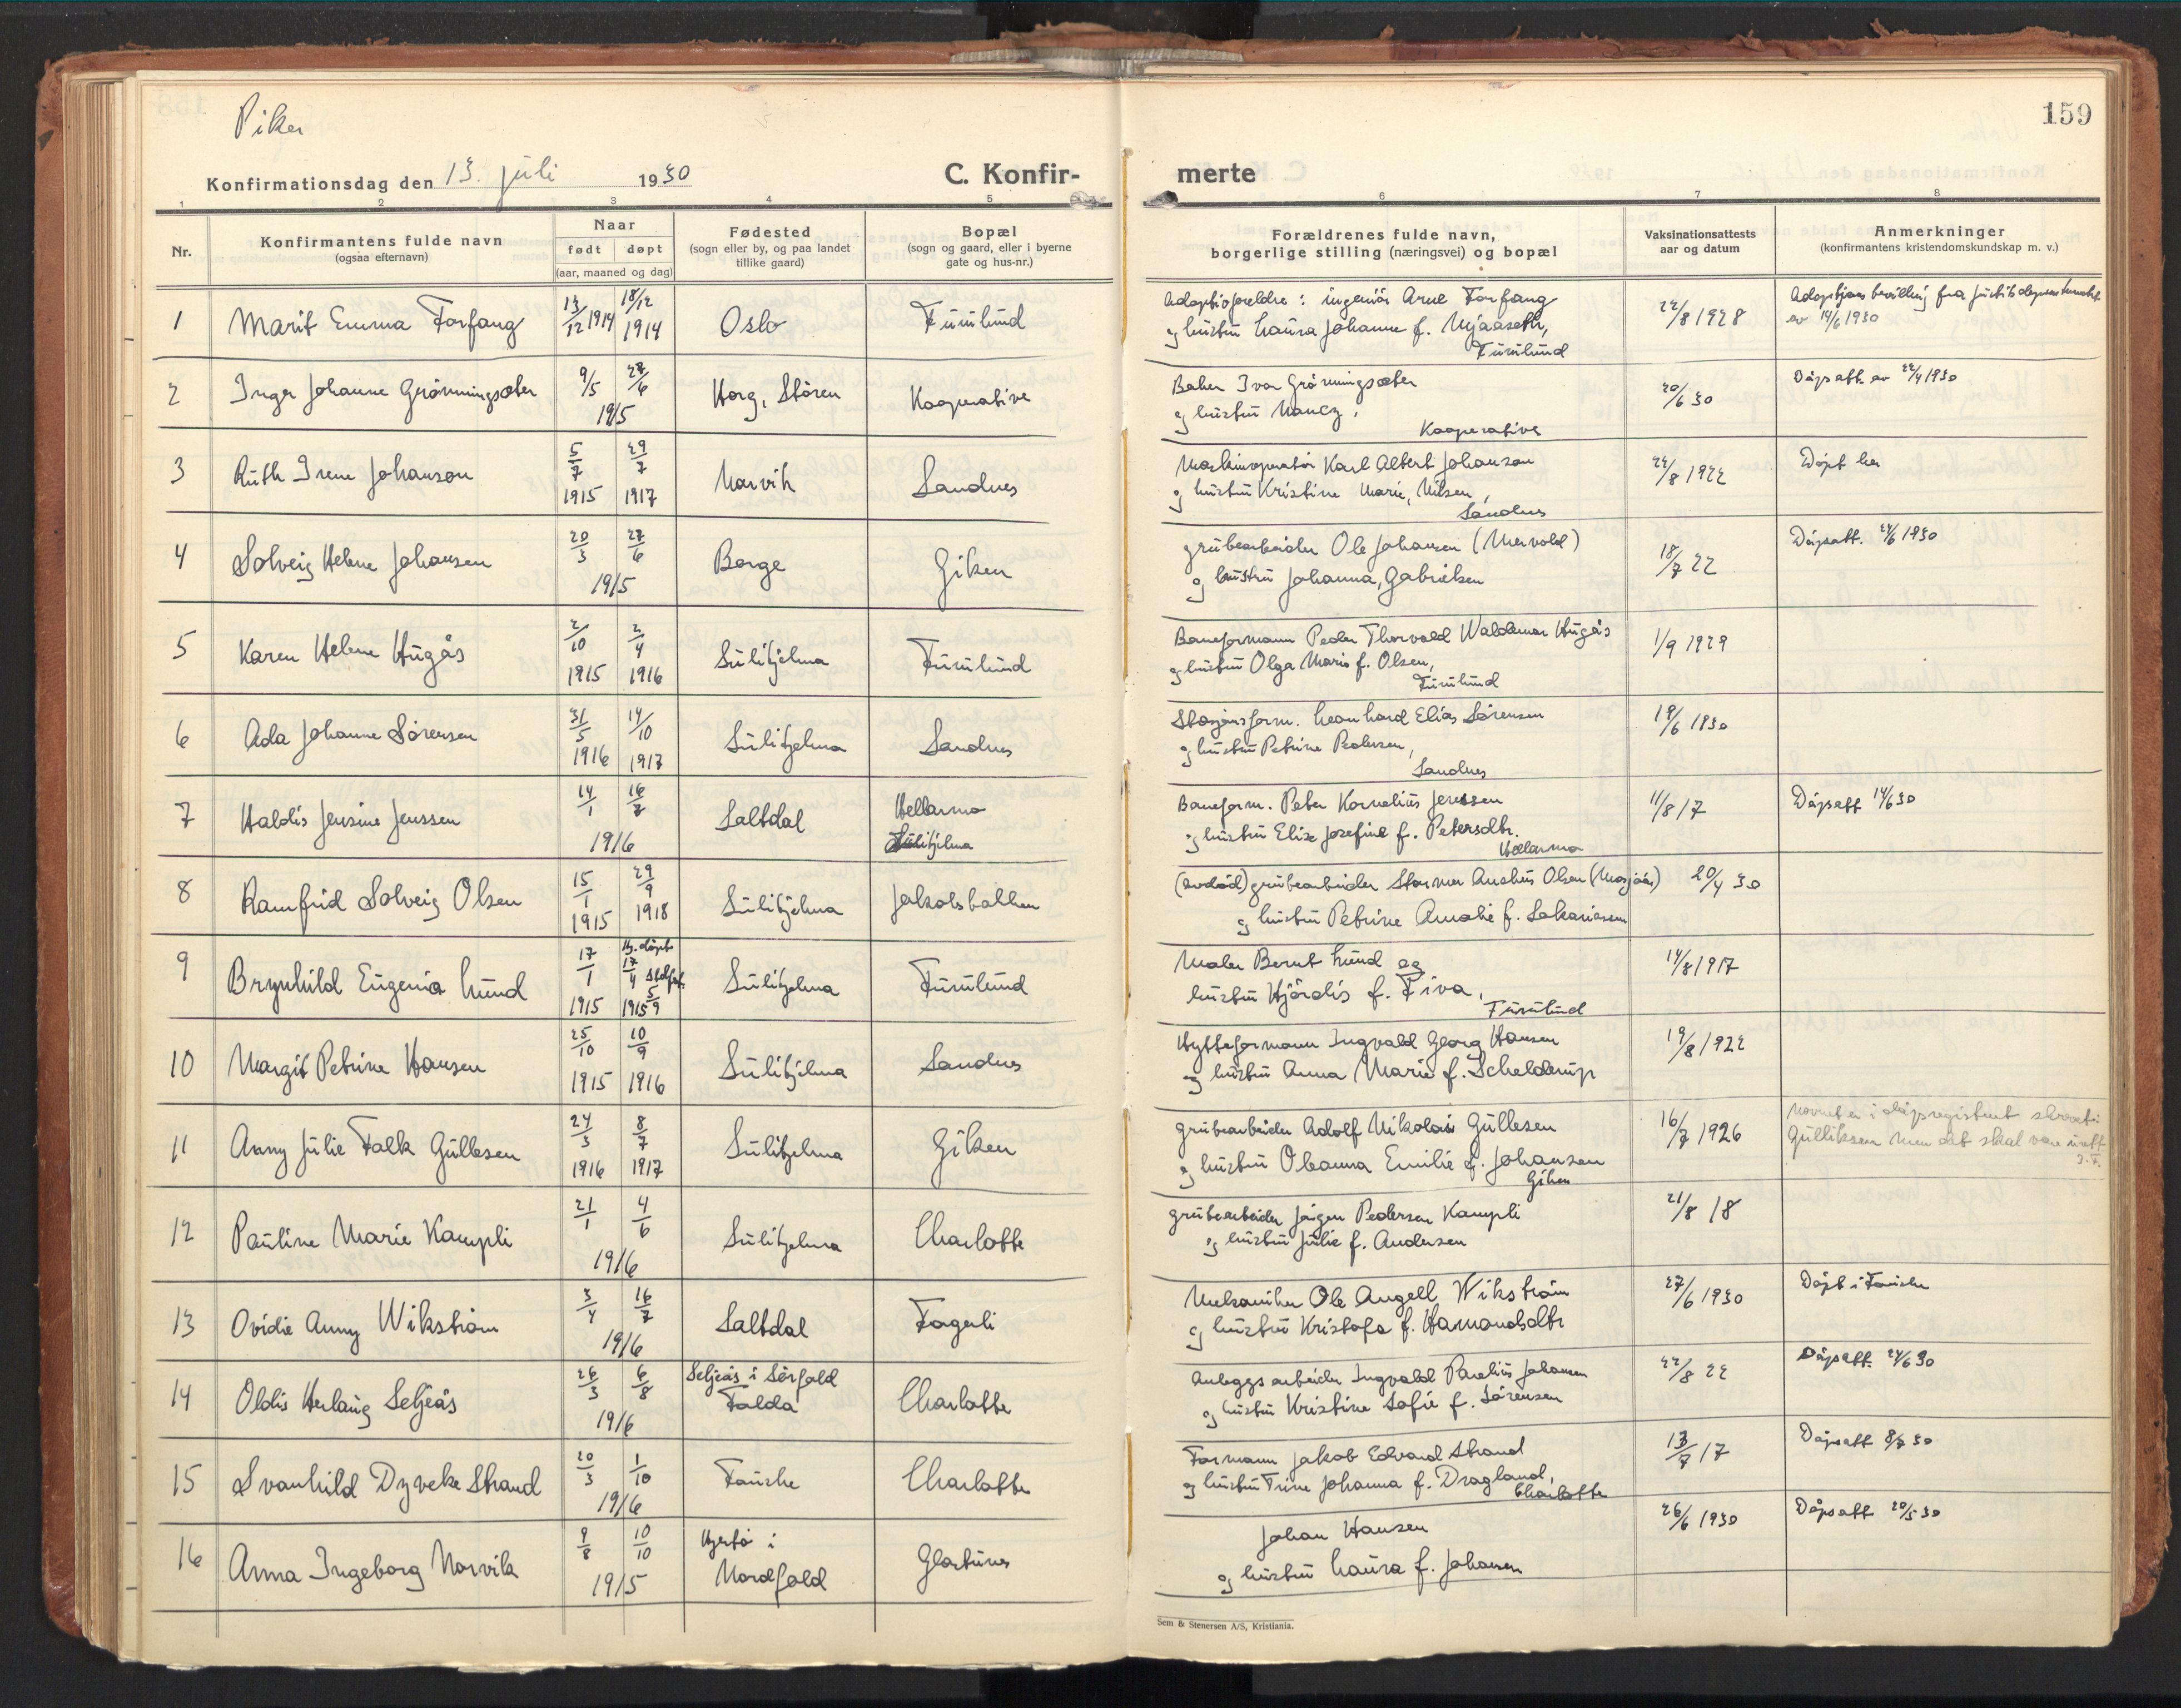 Piker
159
Konfirmationsdag den 13. juli 1930
C. Konfir-
merte
1 2 3 4 5 6 7 8
Nr.
Konfirmantens fulde navn
(ogsaa efternavn)
Naar
født døpt
(aar, maaned og dag)
Fødested
(sogn eller by, og paa landet
tillike gaard)
Bopæl
(sogn og gaard, eller i byerne
gate og hus-nr.)
Forældrenes fulde navn,
borgerlige stilling (næringsvei) og bopæl
Vaksinationsattests
aar og datum
Anmerkninger
(konfirmantens kristendomskundskap m. v.)
1 Marit Emma Forfang 13/12 1914 18/12 1914 Oslo Furulund
Adoptivforeldre: ingeniör Arne Forfang
og hustru Laura Johanne f. Mjaaseth,
Furulund
22/8 1928
Adoptions bevilling fra justisdepartementet
av 14/6 1930
2 Inger Johanne Grönningsæter 9/5 27/6 1915 Horg, Stören Kooperative
Baker Ivar Grönningsæter
og hustru Nancy,
Kooperative
20/6 30
Dåpsatt. av 22/4 1930
3 Ruth Irene Johanson 5/7 1915 29/7 1917 Narvik Sandnes
Maskinoperatör Karl Albert Johanson
og hustru Kristine Marie, Nilsen,
Sandnes
22/8 1922
Döpt her
4 Solveig Helene Johansen 20/3 27/6 1915 Borge Giken
grubearbeider Ole Johansen (Mervold)
og hustru Johanna, Gabrielsen
18/7 22
Dåpsatt. 24/6 1930
5 Karen Helene Hugås 2/10 1915 2/4 1916 Sulitjelma Furulund
Baneformann Peder Thorvald Waldemar Hugås
og hustru Olga Marie f. Olsen,
Furulund
1/9 1929
6 Ada Johanne Sörensen 31/5 1916 14/10 1917 Sulitjelma Sandnes
Stasjonsform. Leonhard Elias Sörensen
og hustru Petrine Pedersen,
Sandnes
19/6 1930
7 Haldis Jensine Jenssen 14/1 16/7 1916 Saltdal Hellarmo
Sulitjelma
Baneform. Peter Kornelius Jenssen
og hustru Elise Josefine f. Petersdtr.
Hellarmo
11/8 17
Dåpsatt 14/6 30
8 Ramfrid Solveig Olsen 15/1 1915 29/9 1918 Sulitjelma Jakobsbakken
(avdöd) grubearbeider Stormer Anshus Olsen (Mosjöen)
og hustru Petrine Amalie f. Sakariassen
20/4 30
9 Brynhild Eugenia Lund 17/1 1915 Hj. döpt 17/4 Stadf. 5/9 1915 Sulitjelma Furulund
Maler Bernt Lund og
hustru Hjördis f. Tiva,
Furulund
14/8 1917
10 Margit Petrine Hansen 25/10 1915 10/9 1916 Sulitjelma Sandnes
Hytteformann Ingvald Georg Hansen
og hustru Anna Marie f. Schelderup
19/8 1922
11 Anny Julie Falk Gullesen 24/3 1916 8/7 1917 Sulitjelma Giken
grubearbeider Adolf Nikolai Gullesen
og hustru Oleanna Emilie f. Johansen
Giken
16/7 1926
Navnet er i dåpsregistret skrevet:
Gulliksen men det skal være
12 Pauline Marie Kampli 21/1 4/6 1916 Sulitjelma Charlotte
grubearbeider Jörgen Pedersen Kampli
og hustru Julie f. Andersen
21/8 18
13 Ovidie Anny Wikström 3/4 16/7 1916 Saltdal Fagerli
Mekaniker Ole Angell Wikström
og hustru Kristofa f. Hamondsdtr
27/6 1930
Döpt i Fauske
14 Oldis Herlaug Seljeås 26/3 6/8 1916 Seljeås i Sörfold
Folda Charlotte
Anleggsarbeider Ingvald Parelius Johansen
og hustru Kristine Sofie f. Sörensen
22/8 22
Dåpsatt. 24/6 30
15 Svanhild Dyveke Strand 20/3 1/10 1916 Fauske Charlotte
Formann Jakob Edvard Strand
og hustru Trine Johanna f. Dragland,
Charlotte
13/7 17
Dåpsatt 8/7 30
16 Anna Ingeborg Norvik 9/8 10/10 1915
Nordfold Glastunes
Johan Hansen
og hustru Laura f. Johansen
26/6 1930
Dåpsatt 20/5 30
Sem & Stenersen A/S, Kristiania.